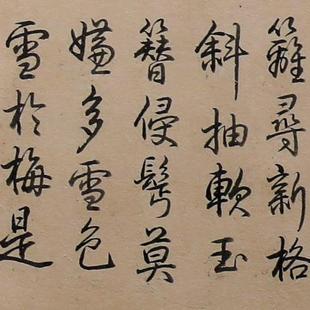 籬尋新格
斜抽軟玉
簪侵髩莫
嫌多雪色
雪於梅是